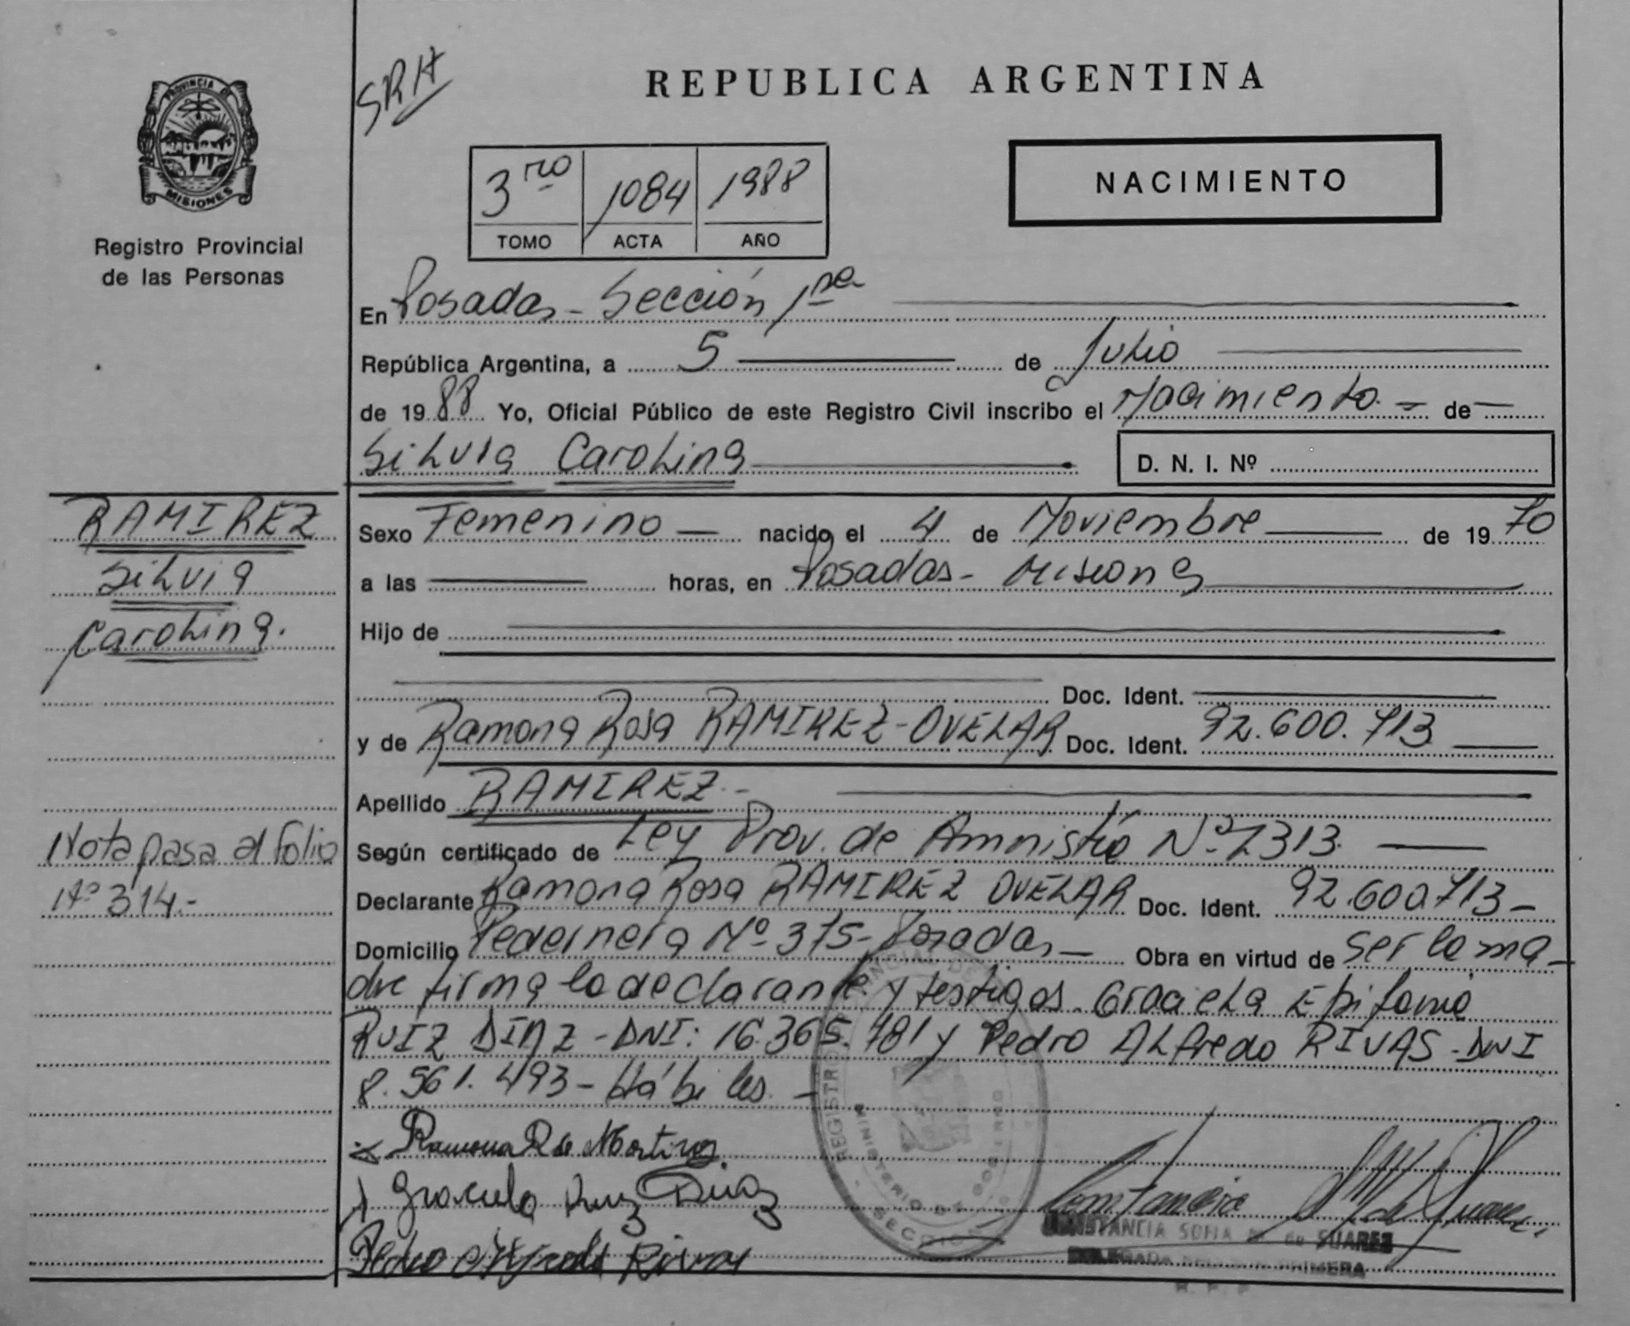 SRH
REPUBLICA ARGENTINA
PROVINCIA DE
MISIONES
Registro Provincial
de las Personas
3ro 1084 1988
TOMO ACTA AÑO
NACIMIENTO
En Posadas - Sección 1ra
República Argentina, a 5 de Julio
de 1988 Yo, Oficial Público de este Registro Civil inscribo el Nacimiento - de
Silvia Carolina
D. N. I. Nº
RAMIREZ
Silvia
Carolina.
Sexo Femenino nacido el 4 de Noviembre de 1970
a las horas, en Posadas - Misiones
Hijo de
Doc. Ident.
y de Ramona Rosa RAMIREZ-OVELAR Doc. Ident. 92.600.713
Apellido RAMIREZ.-
Nota pasa al folio
Nº 314.-
Según certificado de Ley Prov. de Amnistía Nº 2313.
Declarante Ramona Rosa RAMIREZ OVELAR Doc. Ident. 92.600.713-
Domicilio Pedernera Nº 375-Posadas Obra en virtud de ser la ma-
dre firma la declarante y testigos. Graciela Epifania
RUIZ DIAZ - DNI: 16.365.781 y Pedro Alfredo RIVAS - DNI
8.561.493 - Hábiles.
Ramona R de Martinez
Graciela Ruiz Diaz
Pedro Alfredo Rivas
REGISTRO PROVINCIAL DE
MINISTERIO DE GOBIERNO
SECCION
Constancia de Suarez
CONSTANCIA SOFIA de SUAREZ
DELEGADA SECCION PRIMERA
R. P. P.